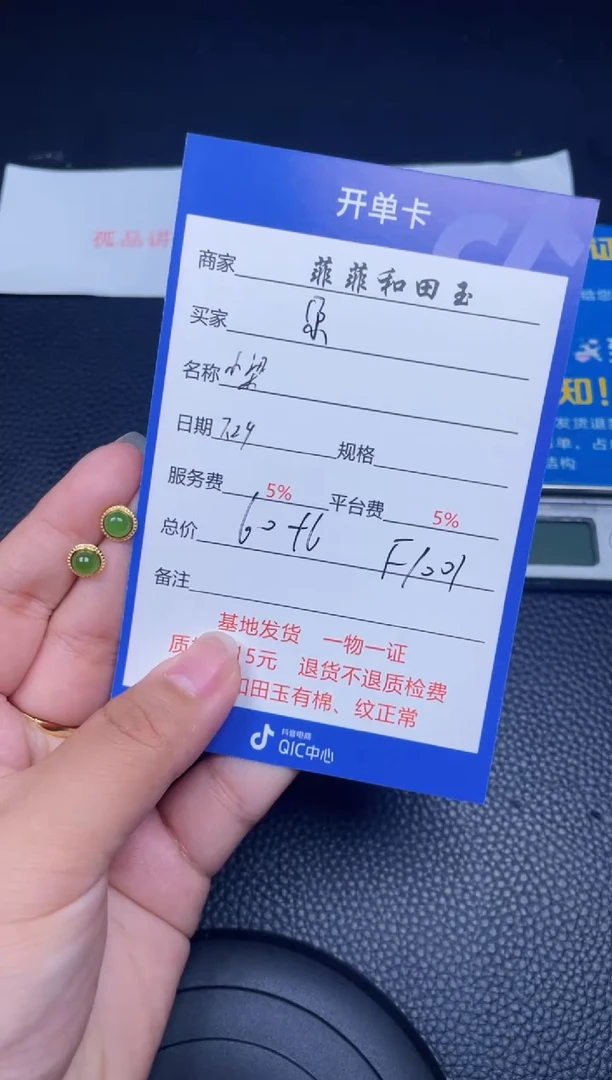 开单卡
商家 菲菲和田玉
买家
名称 小梁
日期 7.29 规格
服务费 5% 平台费 5%
总价 60 F1001
备注
基地发货 一物一证
质 15元 退货不退质检费
和田玉有棉、纹正常
抖音电商
QIC中心
孤品讲
证
知！